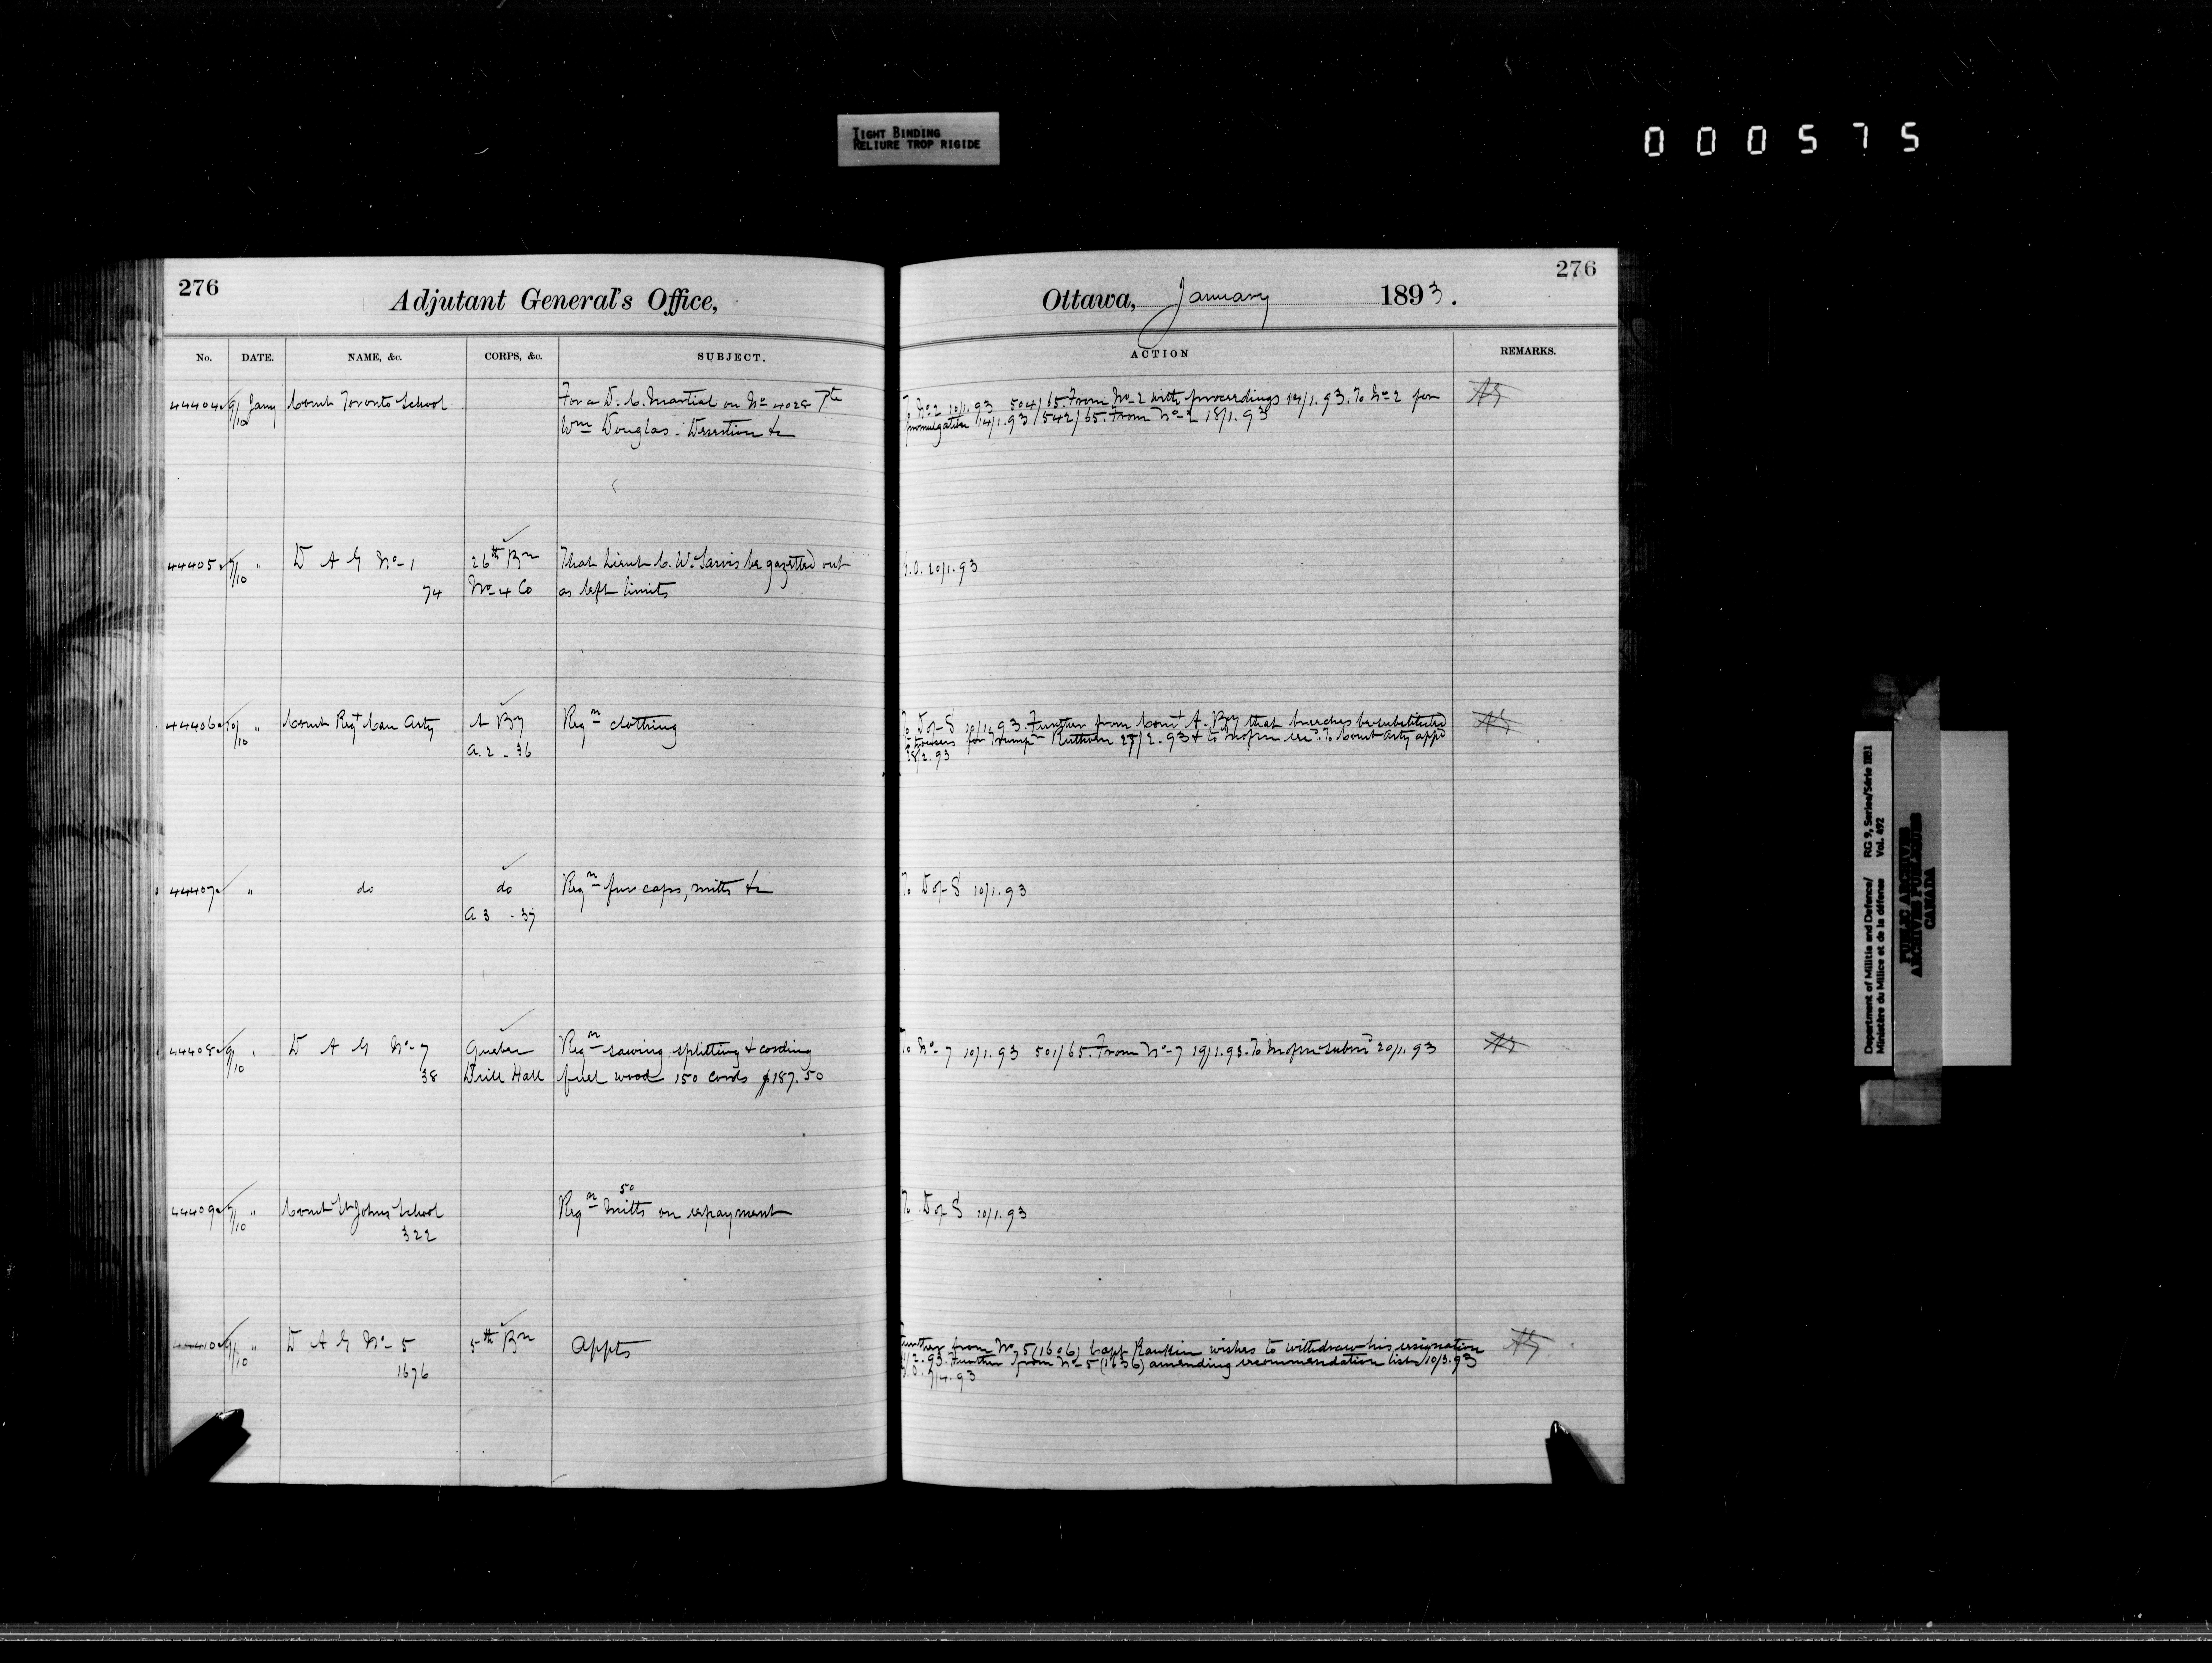 TIGHT BINDING
RELIURE TROP RIGIDE
000575
276
Adjutant General's Office,
No. DATE. NAME, &c. CORPS, &c. SUBJECT.
44404 9/10 Jany Comt Toronto School For a D. C. Martial on No 4028 Pte
Wm Douglas. Desertion &c
44405 9/10 " D A G No 1 26th Bn That Lieut C. W. Jarvis be gazetted out
74 No 4 Co as left limits
44406 10/10 " Comt Regt Can Arty A By Reqn clothing
A.2 - 36
44407 " do do Reqn fur caps, mitts &c
A 3 - 37
44408 9/10 " D A G No 7 Quebec Reqn sawing, splitting & cording
38 Drill Hall fuel wood 150 cords $187.50
44409 9/10 " Comt St Johns School Reqn 50 mitts on repayment
322
44410 9/10 " D A G No 5 5th Bn Appts
1676
276
Ottawa, January 1893.
ACTION REMARKS.
To No 2 10/1.93 504/65. From No 2 with proceedings 14/1.93. To No 2 for
promulgation 14/1.93 / 542/65. From No 2 18/1.93
G.O. 20/1.93
To D of S 10/1.93. Further from Comt A. By that breeches be substituted
trousers for Trumpr Ruthven 27/2.93 & to . To Comt Arty appd
28/2.93
To D of S 10/1.93
To No 7 10/1.93 501/65. From No 7 19/1.93. To 20/1.93
To D of S 10/1.93
Further from No 5 (1606) Capt Rankin wishes to withdraw his resignation
/2.93. Further from No 5 (1636) amending recommendation lists 10/3.93
G.O. 7/4.93
Department of Militia and Defence/ RG 9, Series/Série IIB1
Ministère du Milice et de la défense Vol. 492
PUBLIC ARCHIVES
ARCHIVES PUBLIQUES
CANADA